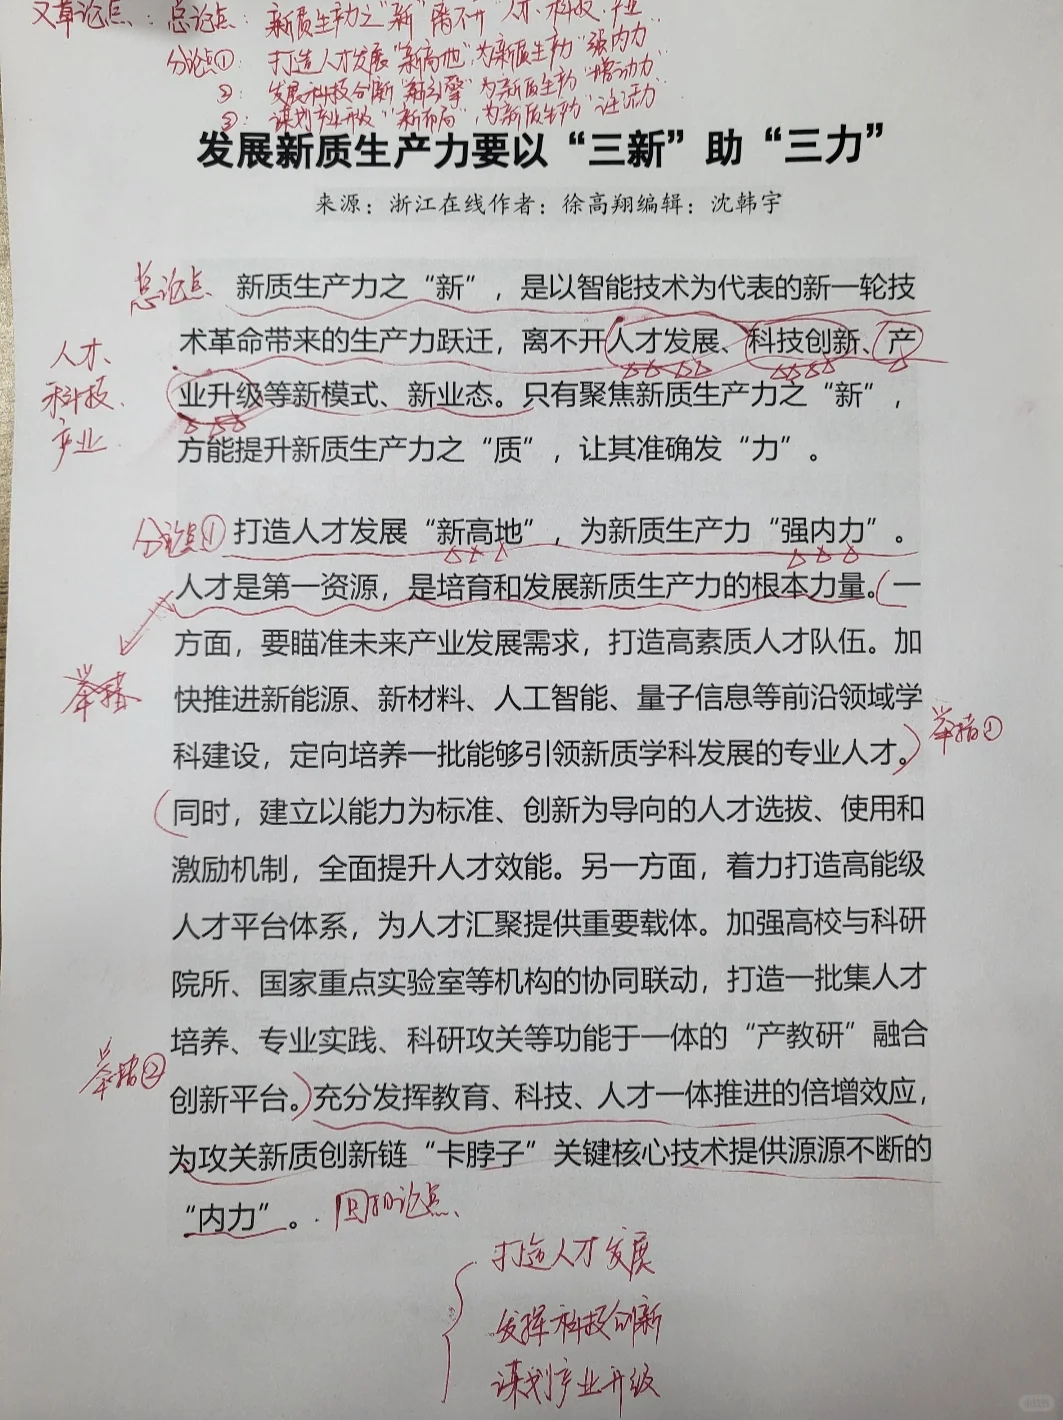 文章论点：总论点：新质生产力之“新”离不开“人才、科技、产业
分论点①：打造人才发展“新高地”，为新质生产力“强内力”
②：发展科技创新“新引擎”为新质生产力“增动力”
③：谋划产业升级“新布局”，为新质生产力“注活力”
发展新质生产力要以“三新”助“三力”
来源：浙江在线作者：徐高翔编辑：沈韩宇
总论点
新质生产力之“新”，是以智能技术为代表的新一轮技
术革命带来的生产力跃迁，离不开人才发展、科技创新、产
业升级等新模式、新业态。只有聚焦新质生产力之“新”，
方能提升新质生产力之“质”，让其准确发“力”。
人才、
科技、
产业
分论点①
打造人才发展“新高地”，为新质生产力“强内力”。
人才是第一资源，是培育和发展新质生产力的根本力量。一
方面，要瞄准未来产业发展需求，打造高素质人才队伍。加
快推进新能源、新材料、人工智能、量子信息等前沿领域学
科建设，定向培养一批能够引领新质学科发展的专业人才。
举措
举措①
同时，建立以能力为标准、创新为导向的人才选拔、使用和
激励机制，全面提升人才效能。另一方面，着力打造高能级
人才平台体系，为人才汇聚提供重要载体。加强高校与科研
院所、国家重点实验室等机构的协同联动，打造一批集人才
培养、专业实践、科研攻关等功能于一体的“产教研”融合
举措②
创新平台。充分发挥教育、科技、人才一体推进的倍增效应，
为攻关新质创新链“卡脖子”关键核心技术提供源源不断的
“内力”。
回扣论点、
打造人才发展
发挥科技创新
谋划产业升级